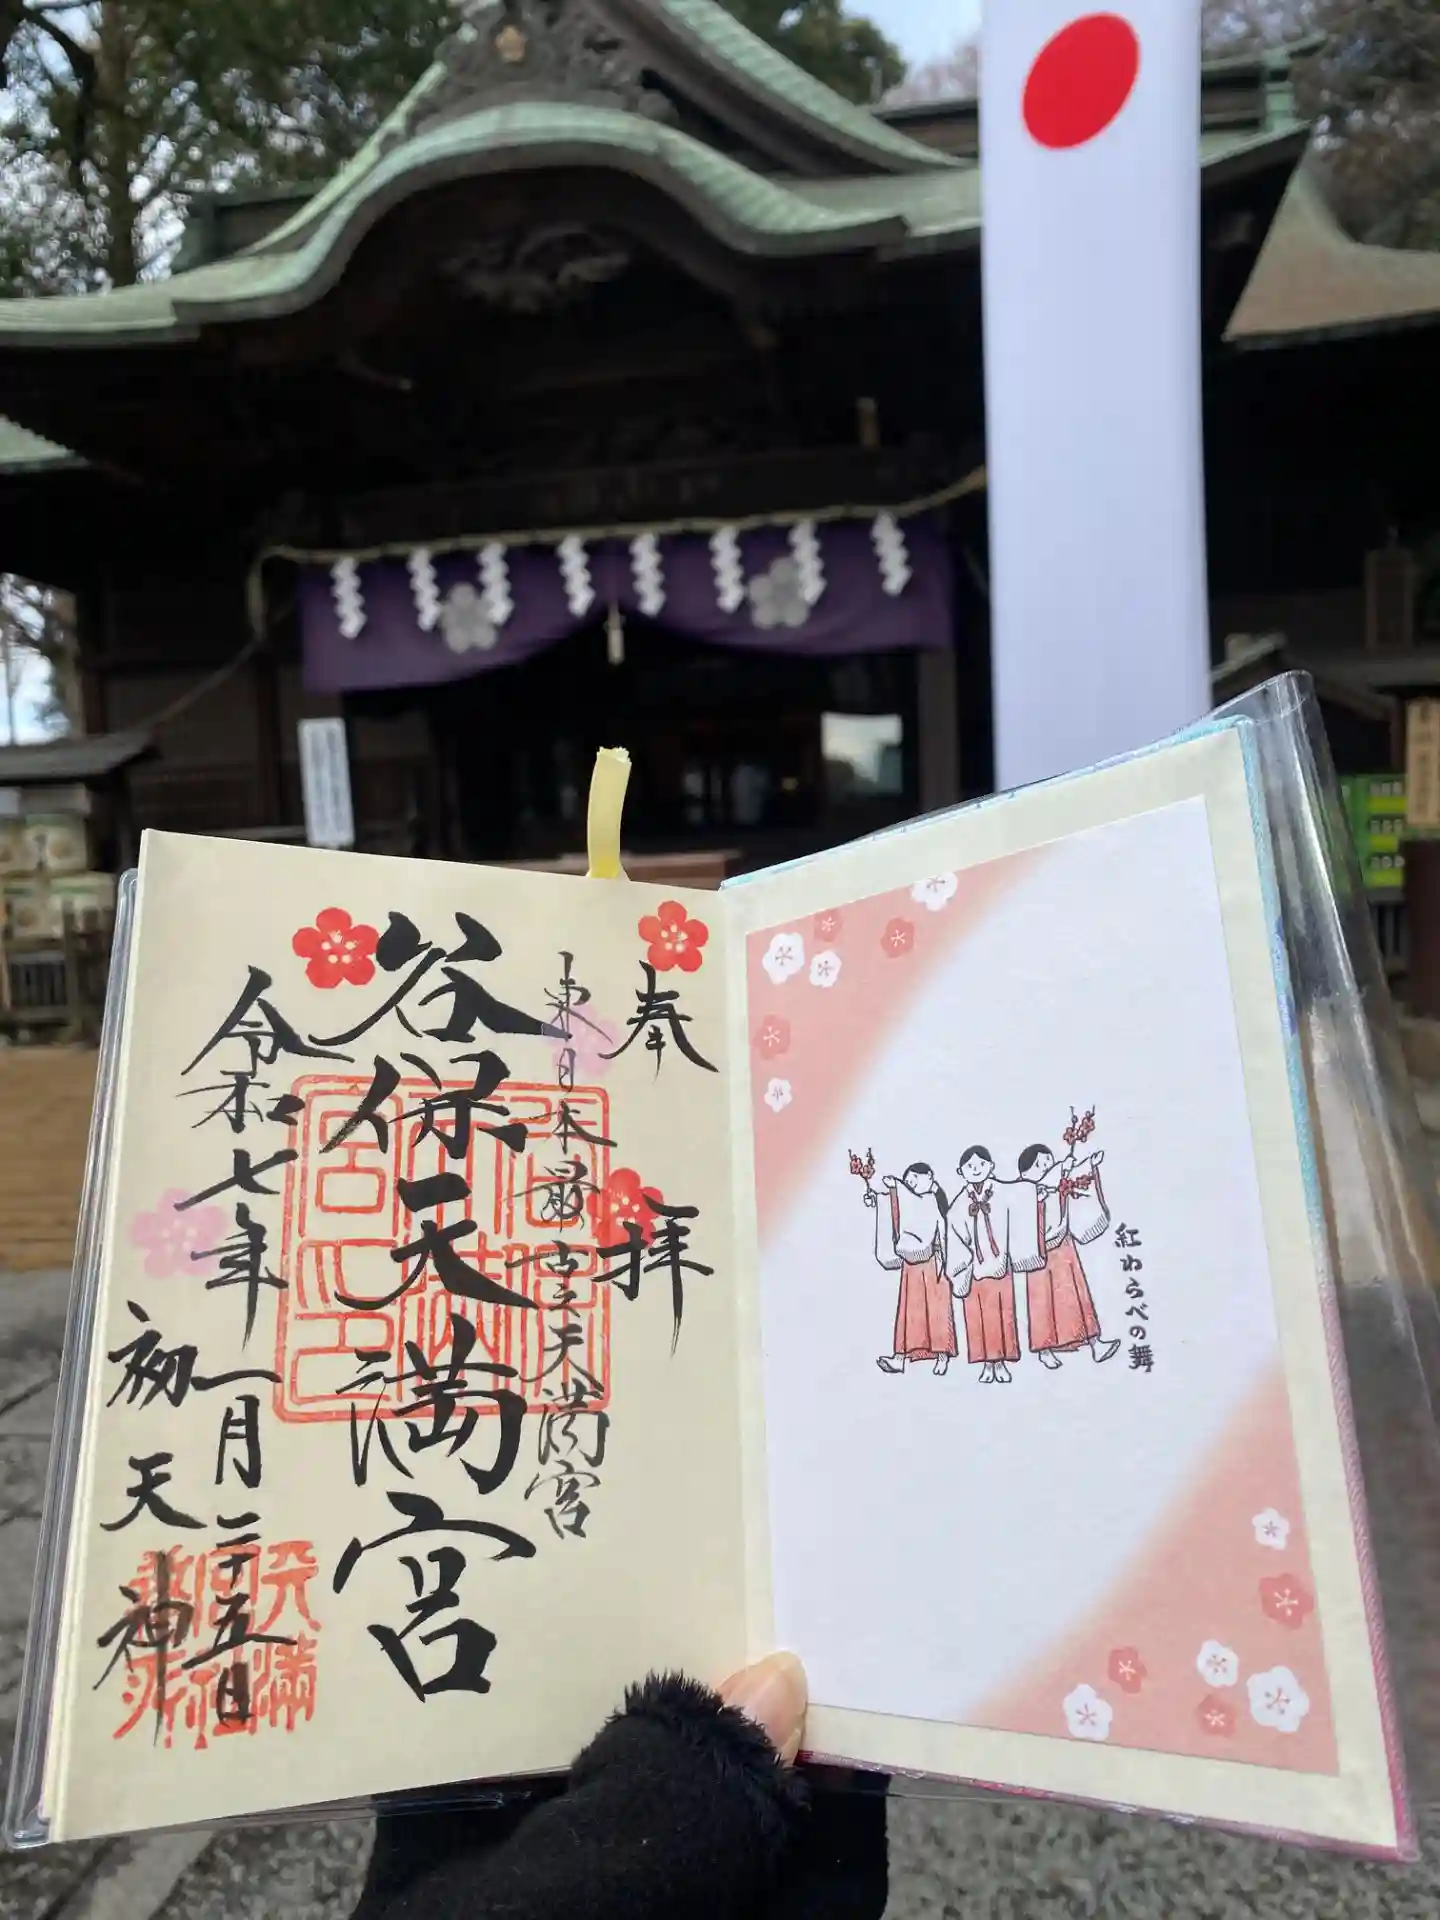 奉拝
東日本最古之天満宮
谷保天満宮
令和七年一月二十五日
初天神
紅わらべの舞